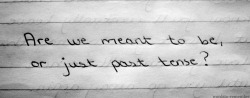 Are we meant to be,
or just past tense?